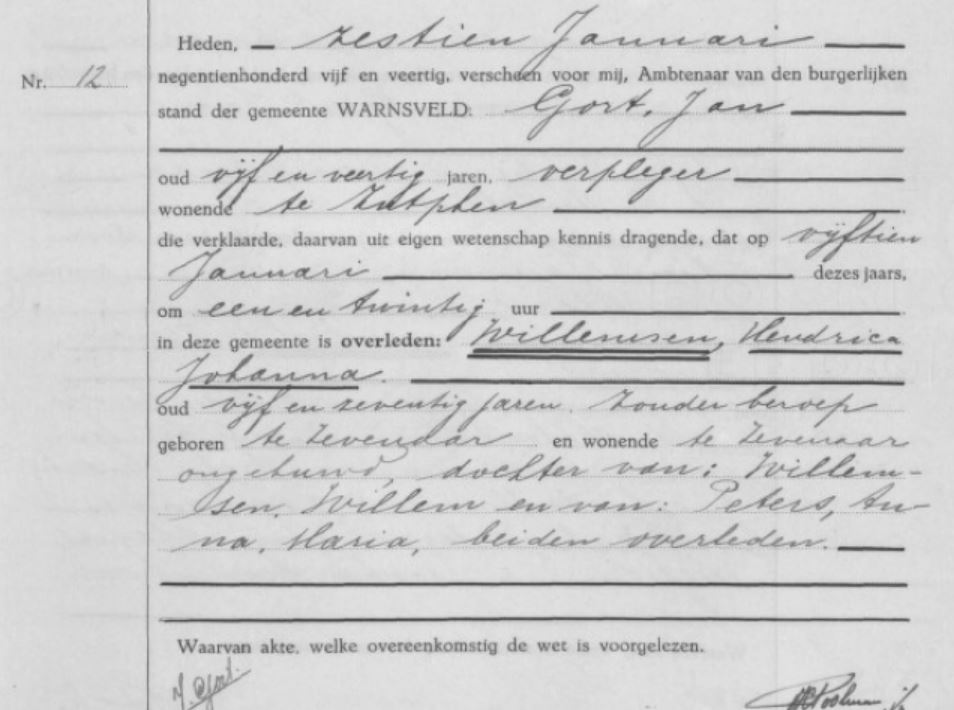 Heden, zestien Januari
Nr. 12
negentienhonderd vijf en veertig, verscheen voor mij, Ambtenaar van den burgerlijken
stand der gemeente WARNSVELD: Gort, Jan
oud vijf en veertig jaren, verpleger
wonende te Zutphen
die verklaarde, daarvan uit eigen wetenschap kennis dragende, dat op vijftien
Januari dezes jaars,
om een en twintig uur
in deze gemeente is overleden: Willemsen, Hendrica
Johanna.
oud vijf en zeventig jaren. Zonder beroep
geboren te Zevenaar en wonende te Zevenaar
ongehuwd, dochter van: Willem-
sen, Willem en van: Peters, An-
na, Maria, beiden overleden.
Waarvan akte, welke overeenkomstig de wet is voorgelezen.
J. Gort.